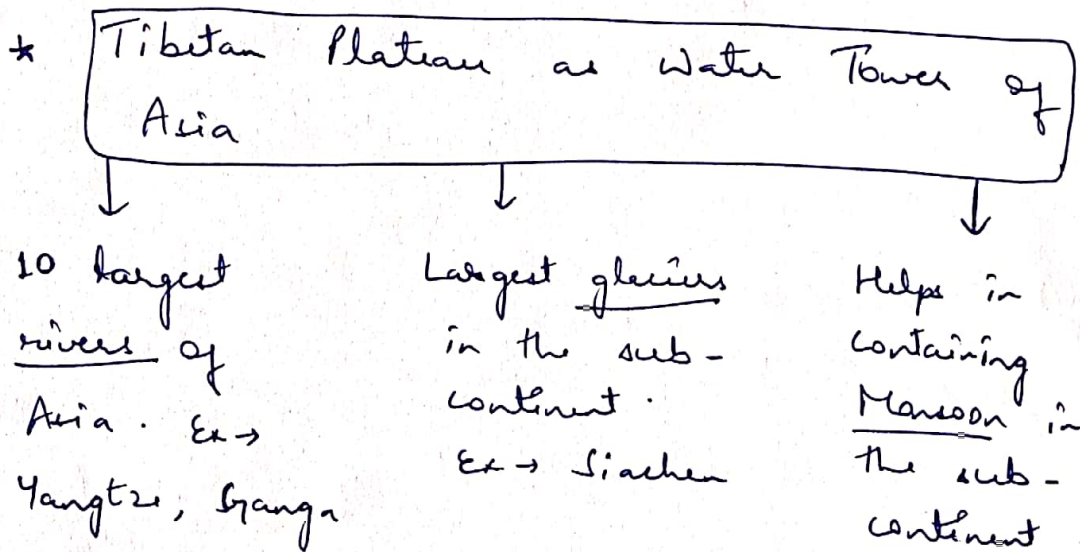 * Tibetan Plateau as Water Tower of
Asia
10 largest
rivers of
Asia. Ex →
Yangtze, Ganga
Largest glaciers
in the sub-
continent.
Ex → Siachen
Helps in
containing
Monsoon in
the sub-
continent